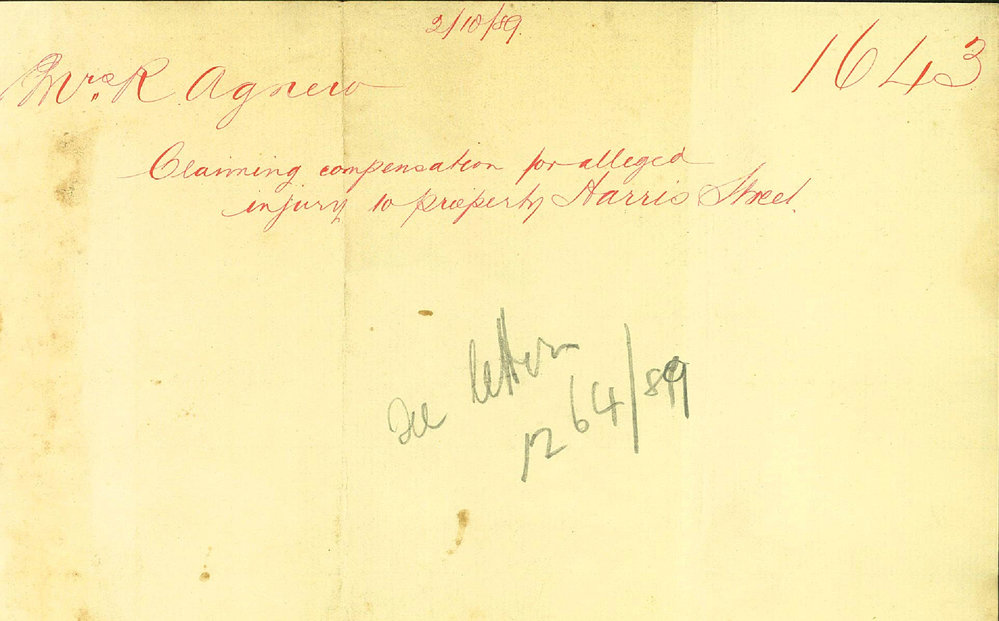 2/10/89.
1643
Mrs. R Agnew
Claiming compensation for alleged
injury to property Harris Street.
See letter
1264/89